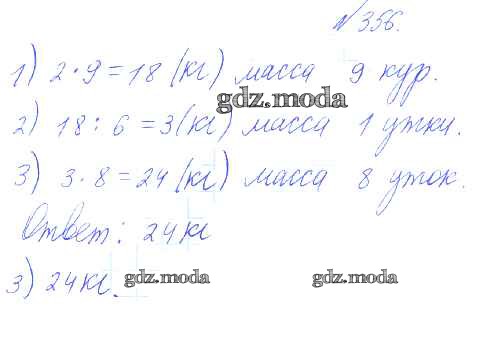 №356.
1) 2·9=18 (кг) масса 9 кур.
gdz.moda
2) 18:6=3(кг) масса 1 утки.
3) 3·8=24 (кг) масса 8 уток.
Ответ: 24 кг
3) 24 кг.
gdz.moda gdz.moda